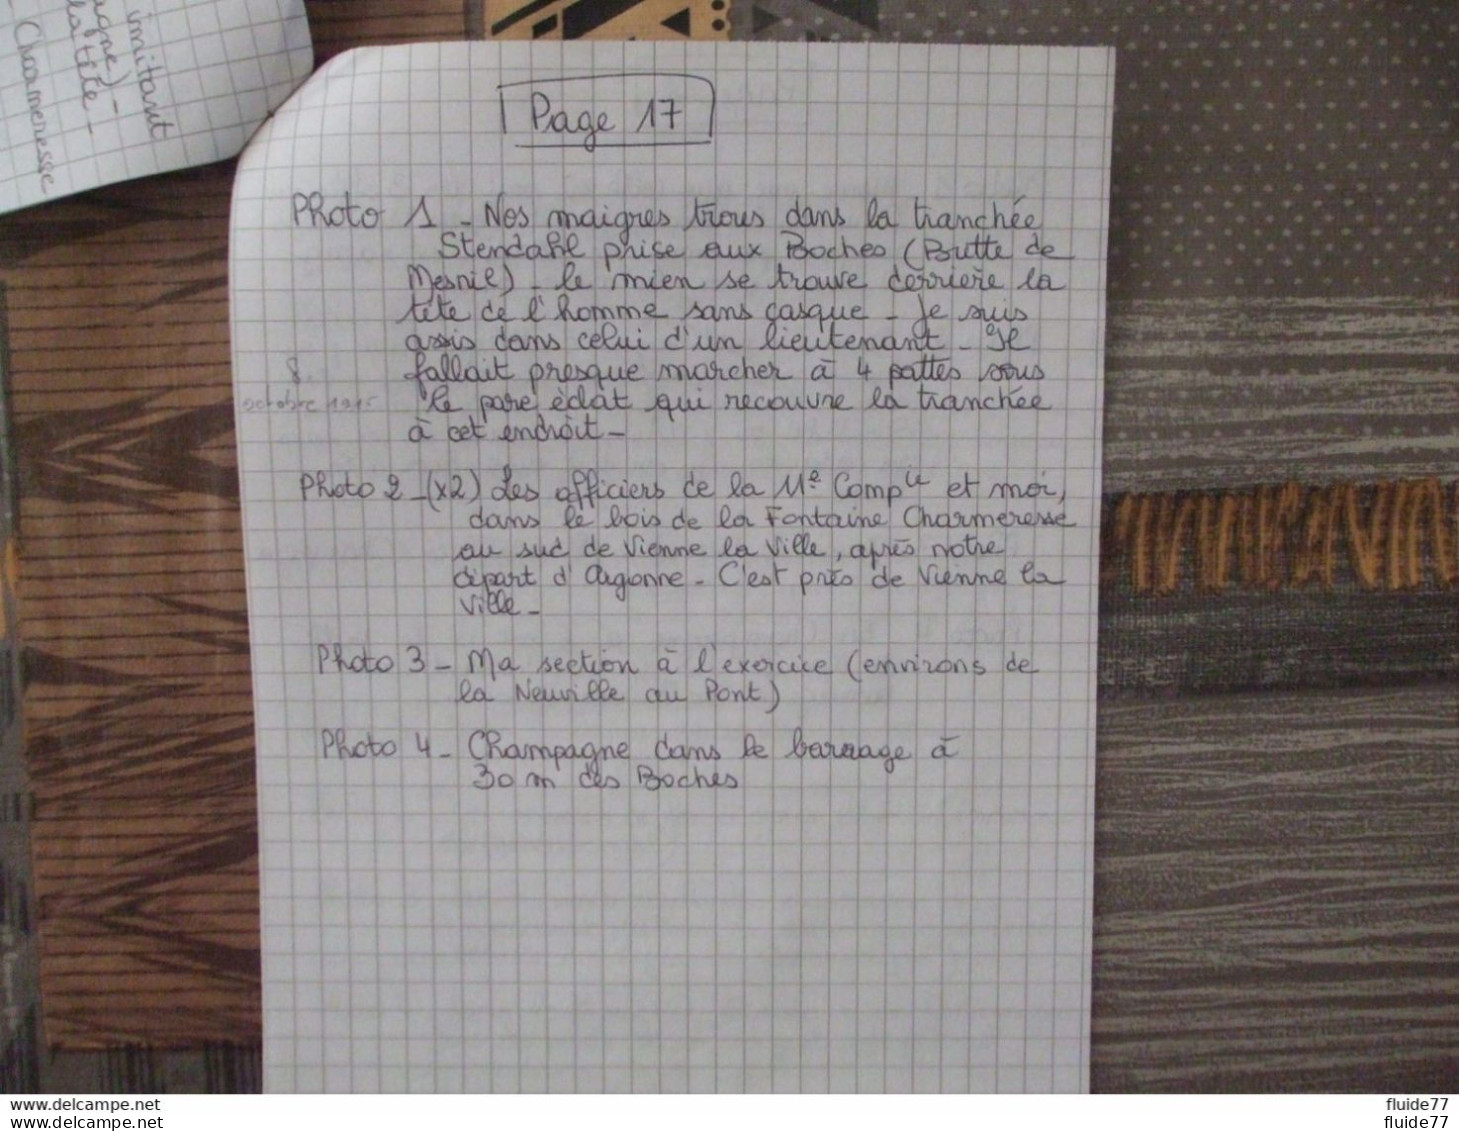 imitant
agne) -
la tête -
Charmeresse
Page 17
Photo 1 - Nos maigres trous dans la tranchée
Stendahl prise aux Boches (Butte de
Mesnil) - le mien se trouve derrière la
tête de l'homme sans casque - Je suis
assis dans celui d'un lieutenant - Il
fallait presque marcher à 4 pattes sous
8
octobre 1915
le pare éclat qui recouvre la tranchée
à cet endroit -
Photo 2 - (x2) Les officiers de la 11e Compie et moi,
dans le bois de la Fontaine Charmeresse
au sud de Vienne la Ville, après notre
départ d'Argonne - C'est près de Vienne la
Ville -
Photo 3 - Ma section à l'exercice (environs de
la Neuville au Pont)
Photo 4 - Champagne dans le barrage à
30 m des Boches
www.delcampe.net
www.delcampe.net
fluide77
fluide77